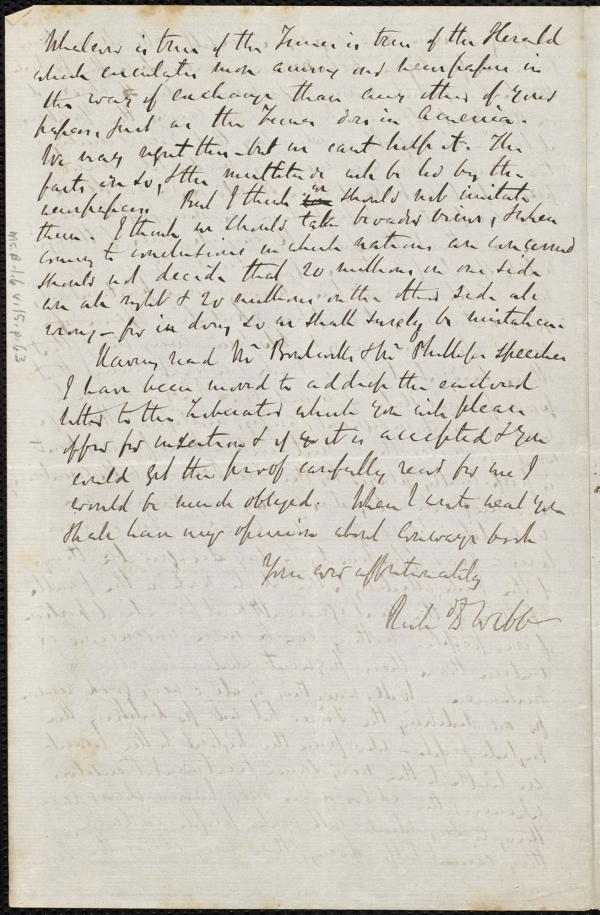 Whatever is true of the Times is true of the Herald
which circulates more among our newspapers in
the way of exchange than any other of your
papers, just as the Times does in America.
We may regret this - but we can't help it. The
facts are so, & the multitude will be led by the
newspapers. But I think we should not imitate
them. I think we should take broader views, & when
coming to conclusions in which nations are concerned
should not decide that 20 millions on one side
are all right & 20 millions on the other side all
wrong - for in doing so we shall surely be mistaken.
Having read Mr and Mr Phillips's speeches
I have been moved to address the enclosed
letter to the Liberator which you will please
offer for insertion & if it is accepted & you
could get the proof carefully read for me I
would be much obliged. When I write next you
shall have my opinion about Conway's book
Yours ever affectionately
Rich D Webb
MS.B.1.6 v.15, p.63